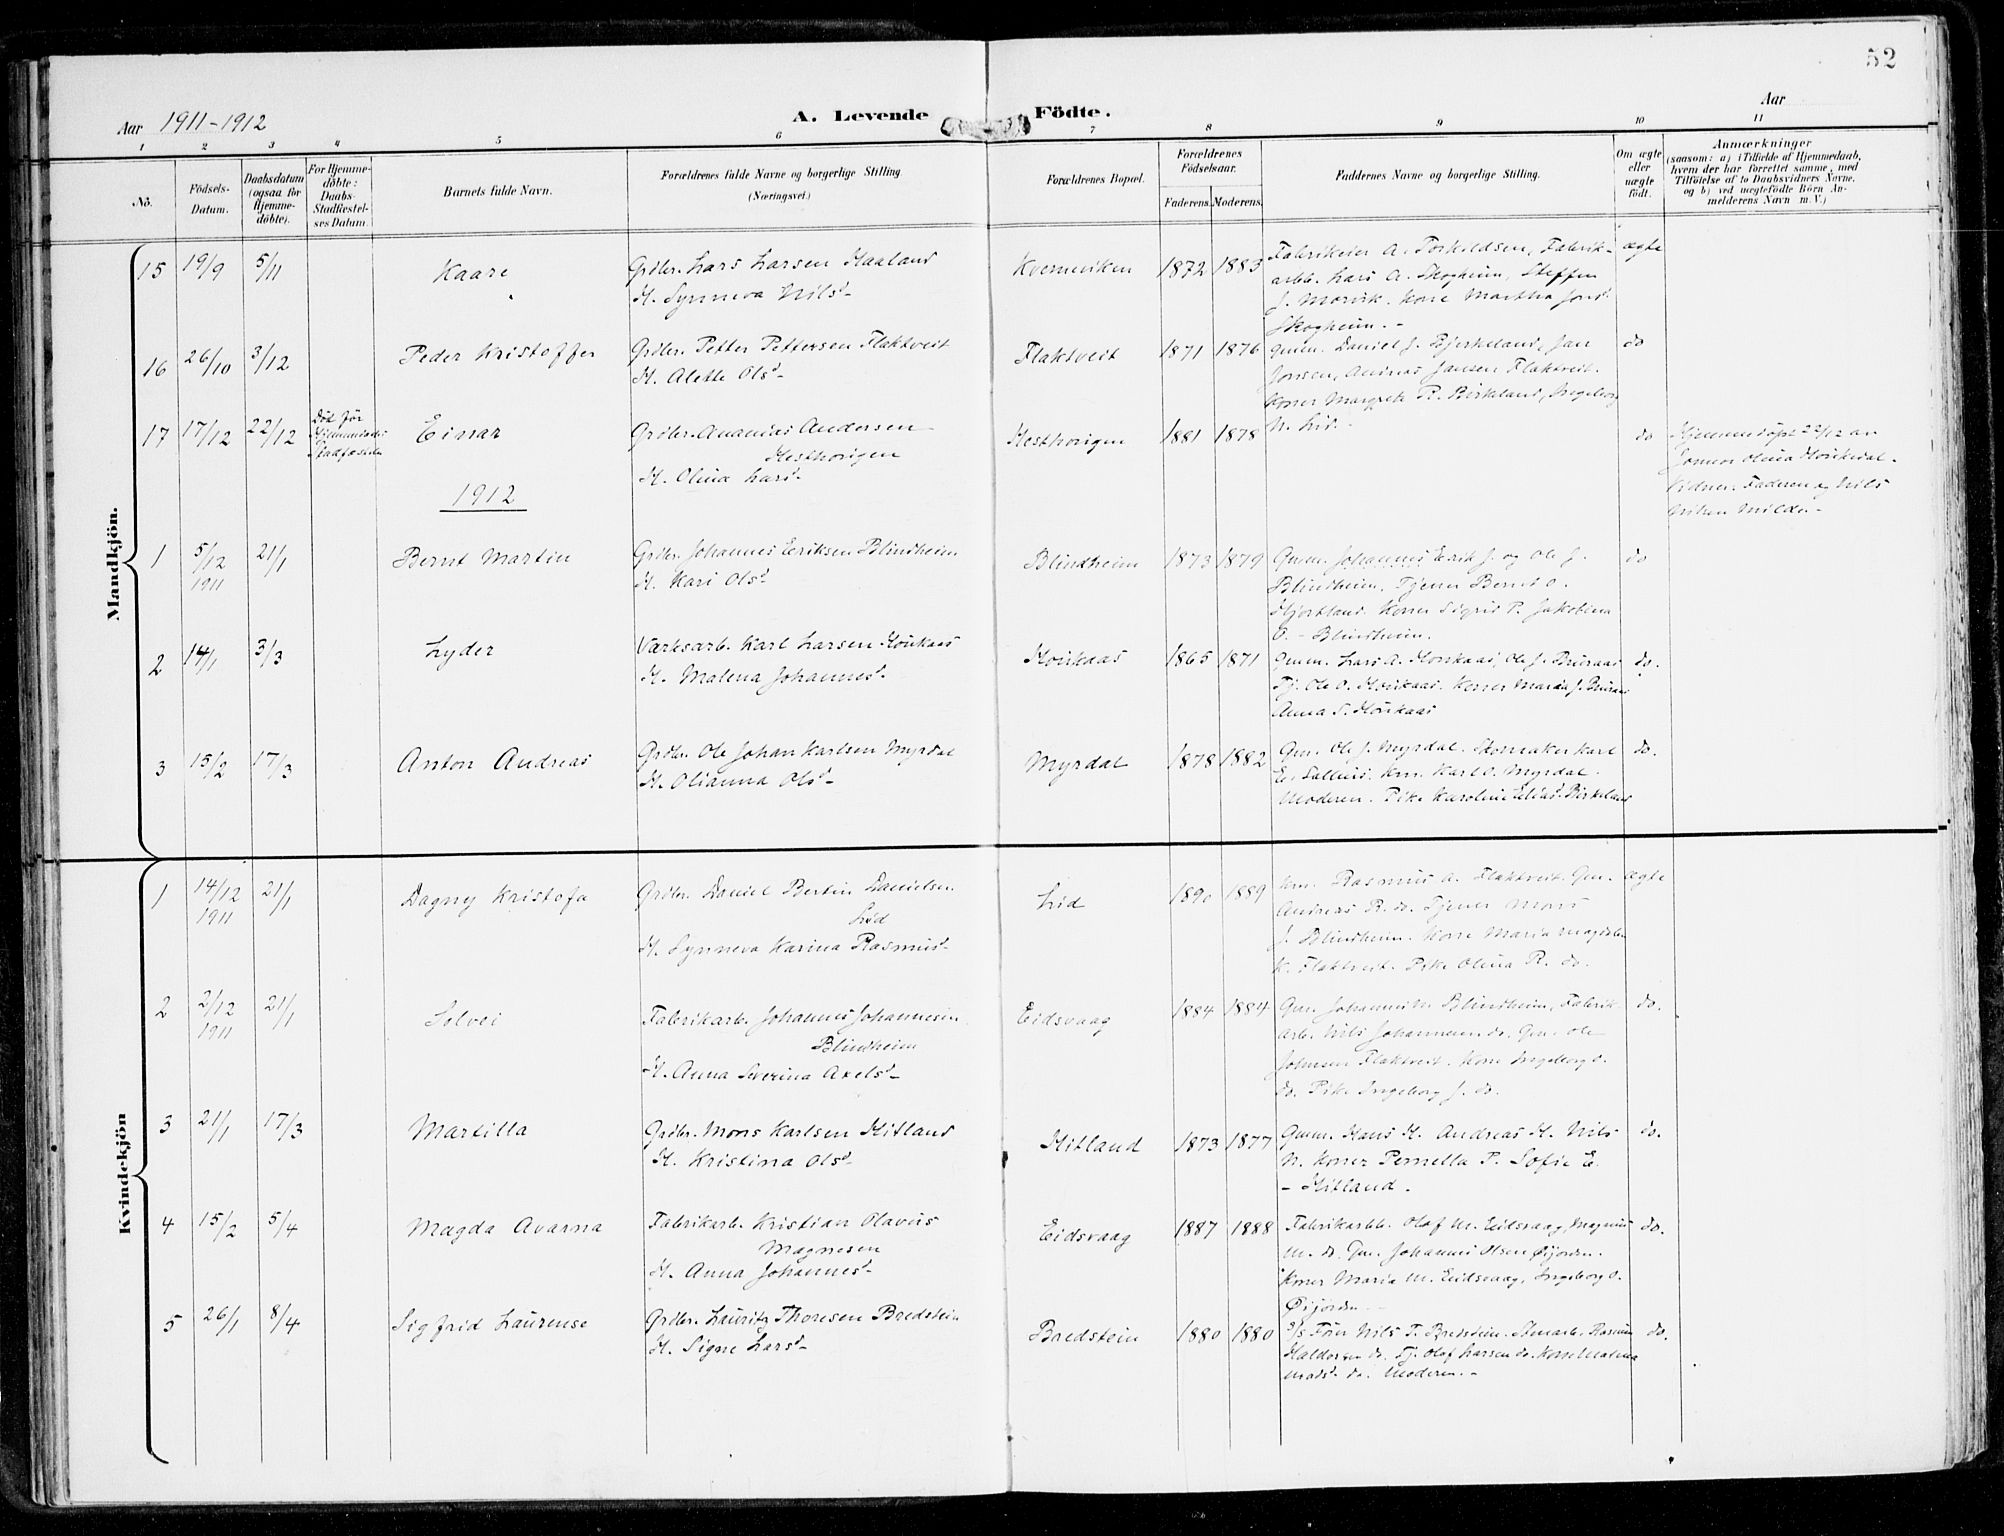 52
Aar 1911-1912
A. Levende Födte.
Aar
1 2 3 4 5 6 7 8 9 10 11
No.
Födsels-Datum.
Daabsdatum (ogsaa for Hjemme-döbte).
For Hjemme-döbte: Daabs-Stadfestel-ses Datum.
Barnets fulde Navn.
Forældrenes fulde Navne og borgerlige Stilling (Næringsvei).
Forældrenes Bopæl.
Forældrenes Födselsaar.
Faderens. Moderens.
Faddernes Navne og borgerlige Stilling.
Om ægte eller uægte födt.
Anmærkninger
(saasom: a) i Tilfælde af Hjemmedaab, hvem der har forrettet samme, med Tilföielse af to Daabsvidners Navne, og b) ved uægtefödte Börn An-melderens Navn m. V.)
Mandkjön.
15 19/9 5/11 Kaare Grdbr. Lars Larsen Haaland Kverneviken 1872 1883 Fabrikeier A. Torkildsen, Fabrik- ægte
H. Synneva Nilsd- arbb. Lars A. Skogheim, Steffen
J. Morvik. Kone Martha Jonsd.
Skogheim.-
16 26/10 3/12 Peder Kristoffer Grdbr. Petter Pettersen Flaktveit Flaktveit 1871 1876 Gmm. Daniel J. Bjerkeland, Jan do
H. Alette Olsd- Jonsen, Andreas Jansen Flaktveit.
Koner Margrete R. Birkland, Ingeborg
N. Lid.-
17 17/12 22/12 Død før Hjemmedaabs Stadfæstelse Einar Grdbr. Ananias Andersen Hesthorigen 1881 1878 do Hjemmedøpt 22/12 av
Hesthorigen
H. Olina Larsd-
Jomor Olina Houkedal.
Vidner: Faderen og Nils
Milde-
1912
1 5/12 1911 21/1 Bernt Martin Grdbr. Johannes Eriksen Blindheim Blindheim 1873 1879 Gmm. Johannes, Erik J. og Ole J. do
H. Kari Olsd Blindheim, Tjener Bernt O.
Hjortland. Koner Sigrid P. Jakobina
O. - Blindheim.
2 14/1 3/3 Lyder Værksarb. Karl Larsen Houkaas Houkaas 1865 1871 Gmm. Lars A. Houkaas, Ole J. Bruraas do.
H. Malena Johannesd. Tj. Ole O. Houkaas. Koner Maria J. Bruraas
Anna S. Houkaas
3 15/2 17/3 Anton Andreas Grdbr. Ole Johan Karlsen Myrdal Myrdal 1878 1882 Gm. Ole J. Myrdal. Skomaker Karl do.
H. Olianna Olsd- E. Km. Karl O. Myrdal.
Moderen. Pike Karoline Eliasd. Birkeland
Kvindekjön
1 14/12 1911 21/1 Dagny Kristofa Grdbr. Daniel Bertin Danielsen Lid 1890 1889 Km. Rasmus A. Flaktveit. Gm. ægte
Lid Andreas R. do. Tjener Mons
H. Synneva Karina Rasmusd- J. Blindheim. Kone Maria
K. Flaktveit. Pike Olina R. do.
2 2/12 1911 21/1 Solvei Fabrikarb. Johannes Johannesen Eidsvaag 1884 1884 Gm. Johannes N. Blindheim, Fabrik- do.
Blindheim arb. Nils Johannesen do. Gm. Ole
H. Anna Severina Axelsd- Johnsen Flaktveit. Kone Ingeborg O.
do. Pike Ingeborg J. do.
3 21/1 17/3 Martilla Grdbr. Mons Karlsen Hitland Hitland 1873 1877 Gmm. Hans H. Andreas H. Nils do.
H. Kristina Olsd- N. Koner Pernella P. Sofie E.
- Hitland.
4 15/2 5/4 Magda Avarna Fabrikarb. Kristian Olavus Eidsvaag 1887 1888 Fabrikarbb. Olaf M. Eidsvaag, Magnus do.
Magnesen M. do. Gm. Johannes Olsen Øijorden.
H. Anna Johannesd- Koner Maria M. Eidsvaag, Ingeborg O.
Øijorden.-
5 26/1 8/4 Sigfrid Laurense Grdbr. Lauritz Thoresen Bredstein Bredstein 1880 1880 Nils T. Bredstein. Rasmus do.
H. Signe Larsd- Haldorsen do. Tj. Olaf Larsen do. Kone Malena
Madsd. do. Moderen.-